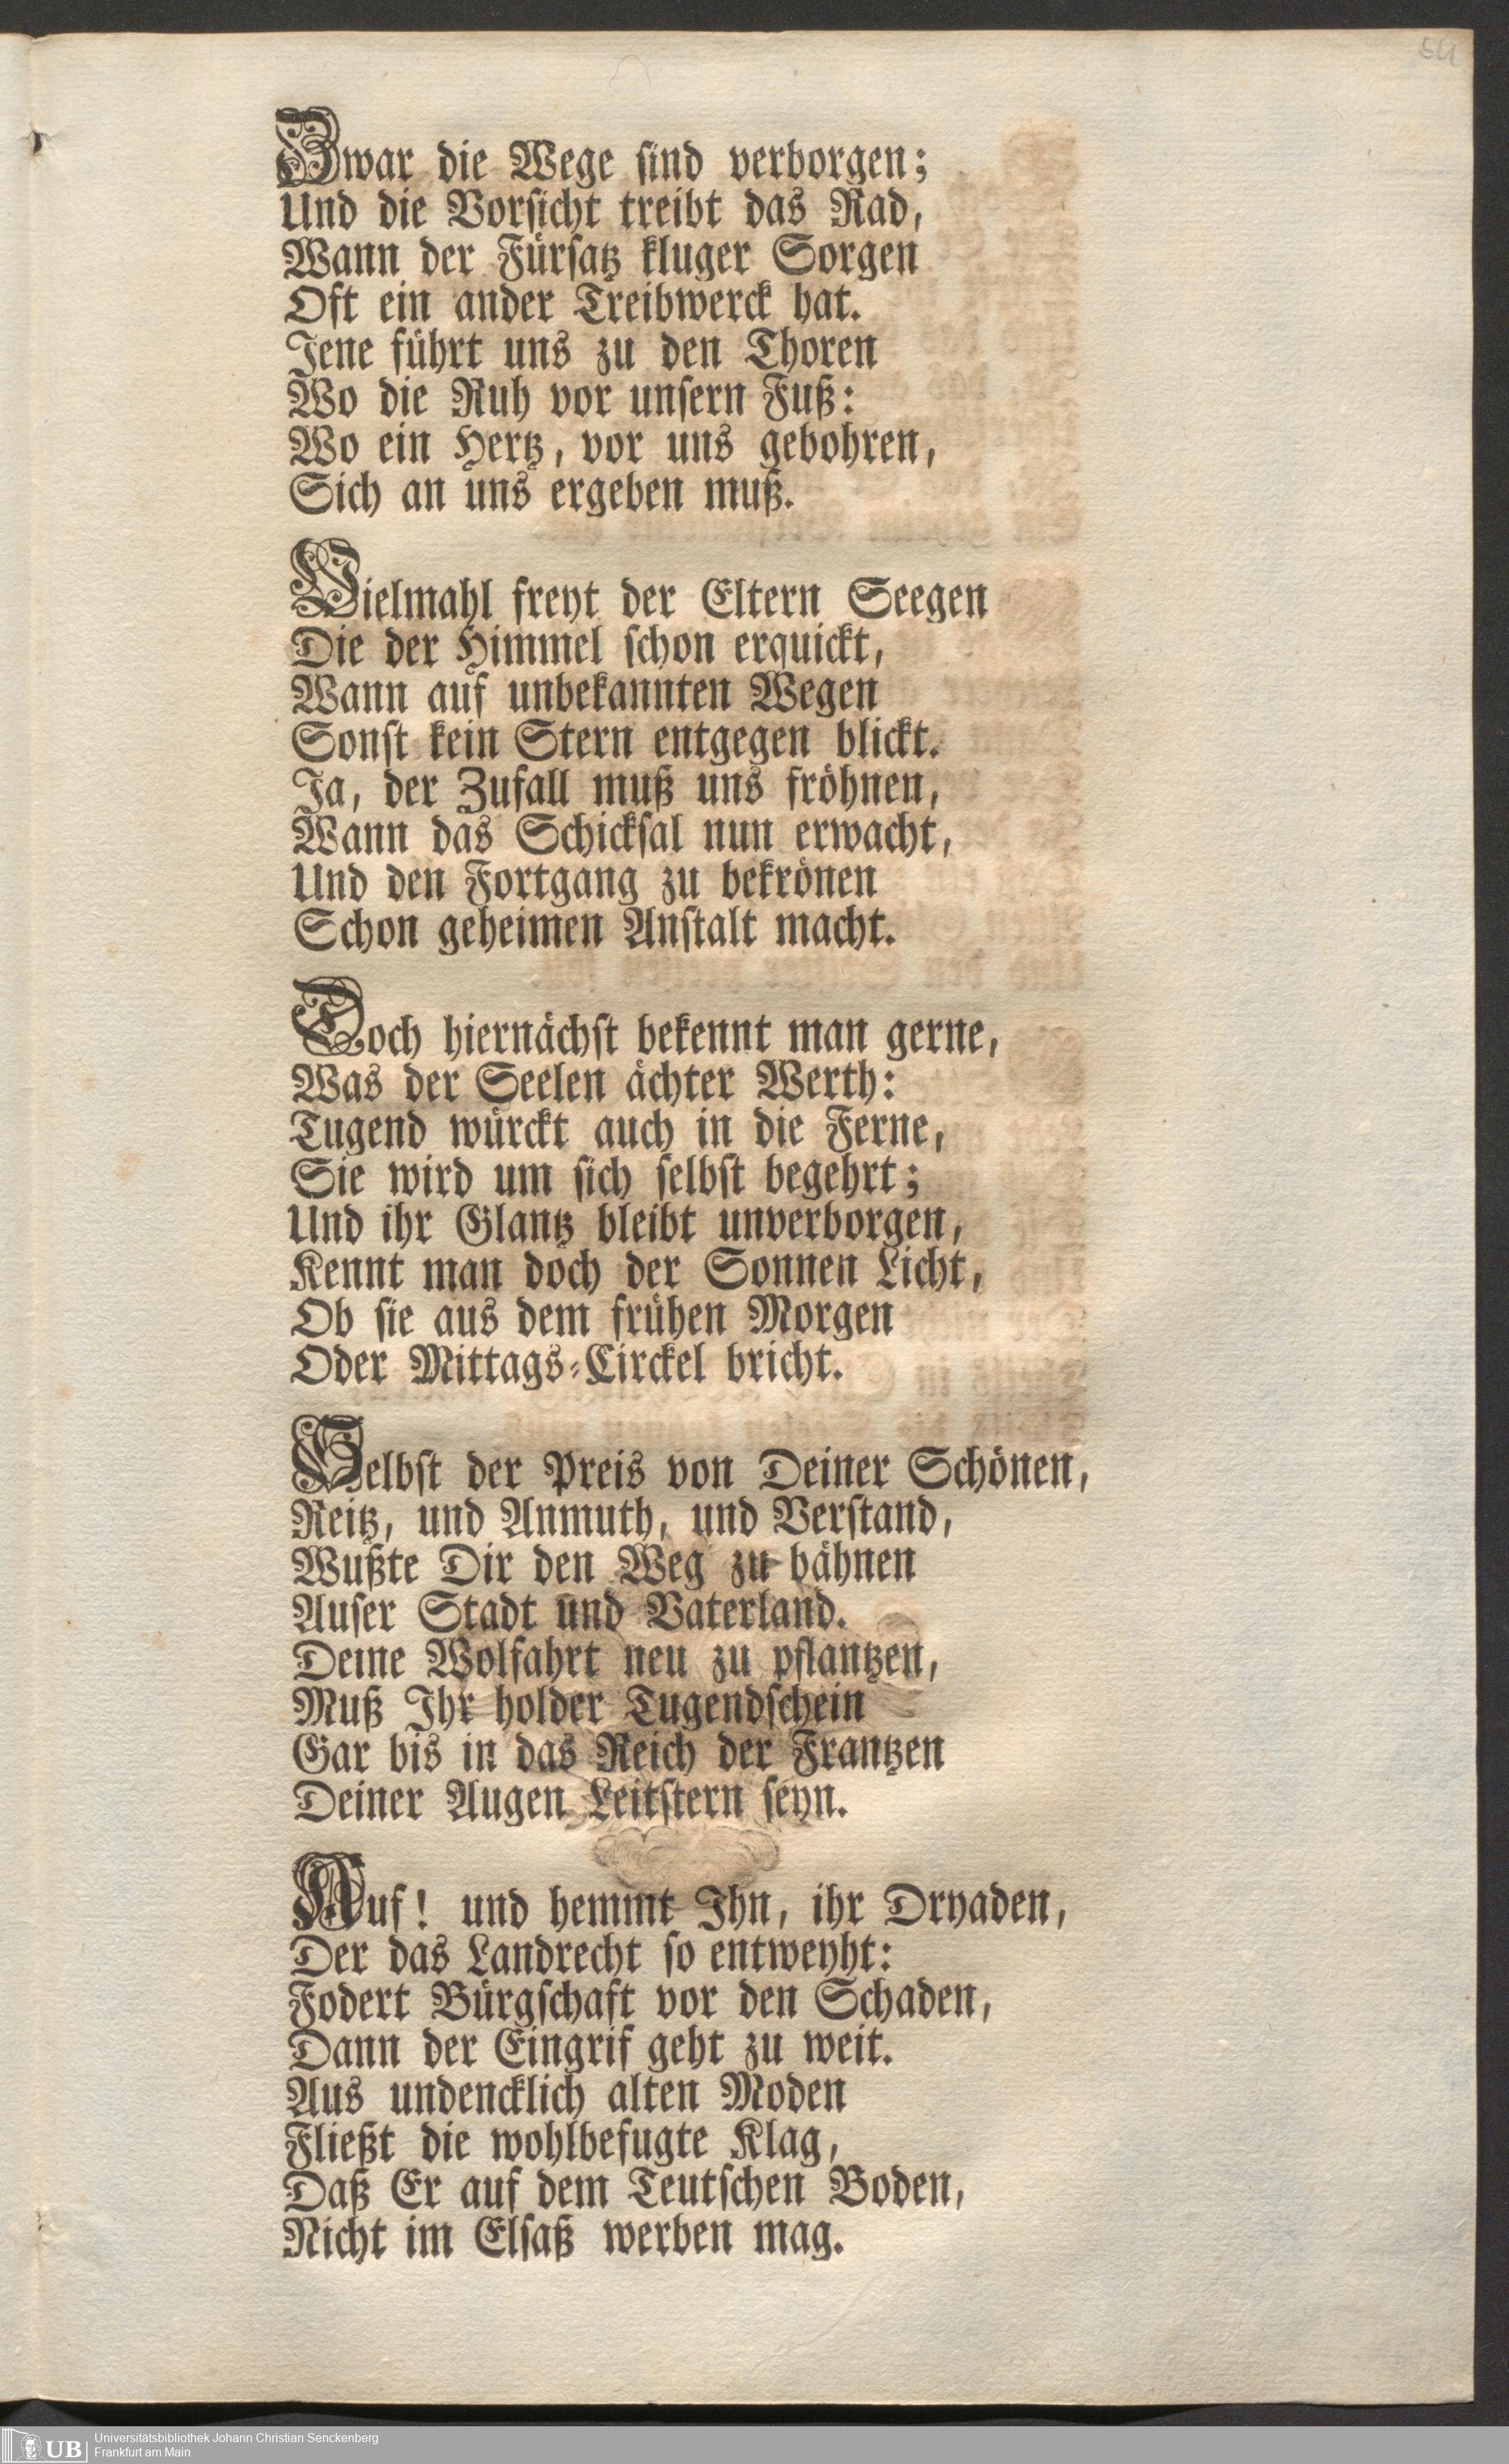 54
Zwar die Wege sind verborgen;
Und die Vorsicht treibt das Rad,
Wann der Fürsatz kluger Sorgen
Oft ein ander Treibwerck hat.
Jene führt uns zu den Thoren
Wo die Ruh vor unsern Fuß:
Wo ein Hertz, vor uns gebohren,
Sich an uns ergeben muß.
Vielmahl freyt der Eltern Seegen
Die der Himmel schon erquickt,
Wann auf unbekannten Wegen
Sonst kein Stern entgegen blickt.
Ja, der Zufall muß uns fröhnen,
Wann das Schicksal nun erwacht,
Und den Fortgang zu bekrönen
Schon geheimen Anstalt macht.
Doch hiernächst bekennt man gerne,
Was der Seelen ächter Werth:
Tugend würckt auch in die Ferne,
Sie wird um sich selbst begehrt;
Und ihr Glantz bleibt unverborgen,
Kennt man doch der Sonnen Licht,
Ob sie aus dem frühen Morgen
Oder Mittags-Circkel bricht.
Selbst der Preis von Deiner Schönen,
Reitz, und Anmuth, und Verstand,
Wußte Dir den Weg zu bähnen
Auser Stadt und Vaterland.
Deine Wolfahrt neu zu pflantzen,
Muß Ihr holder Tugendschein
Gar bis in das Reich der Frantzen
Deiner Augen Leitstern seyn.
Auf! und hemmt Ihn, ihr Dryaden,
Der das Landrecht so entweyht:
Fodert Bürgschaft vor den Schaden,
Dann der Eingrif geht zu weit.
Aus undencklich alten Moden
Fließt die wohlbefugte Klag,
Daß Er auf dem Teutschen Boden,
Nicht im Elsaß werben mag.
UB Universitätsbibliothek Johann Christian Senckenberg
Frankfurt am Main